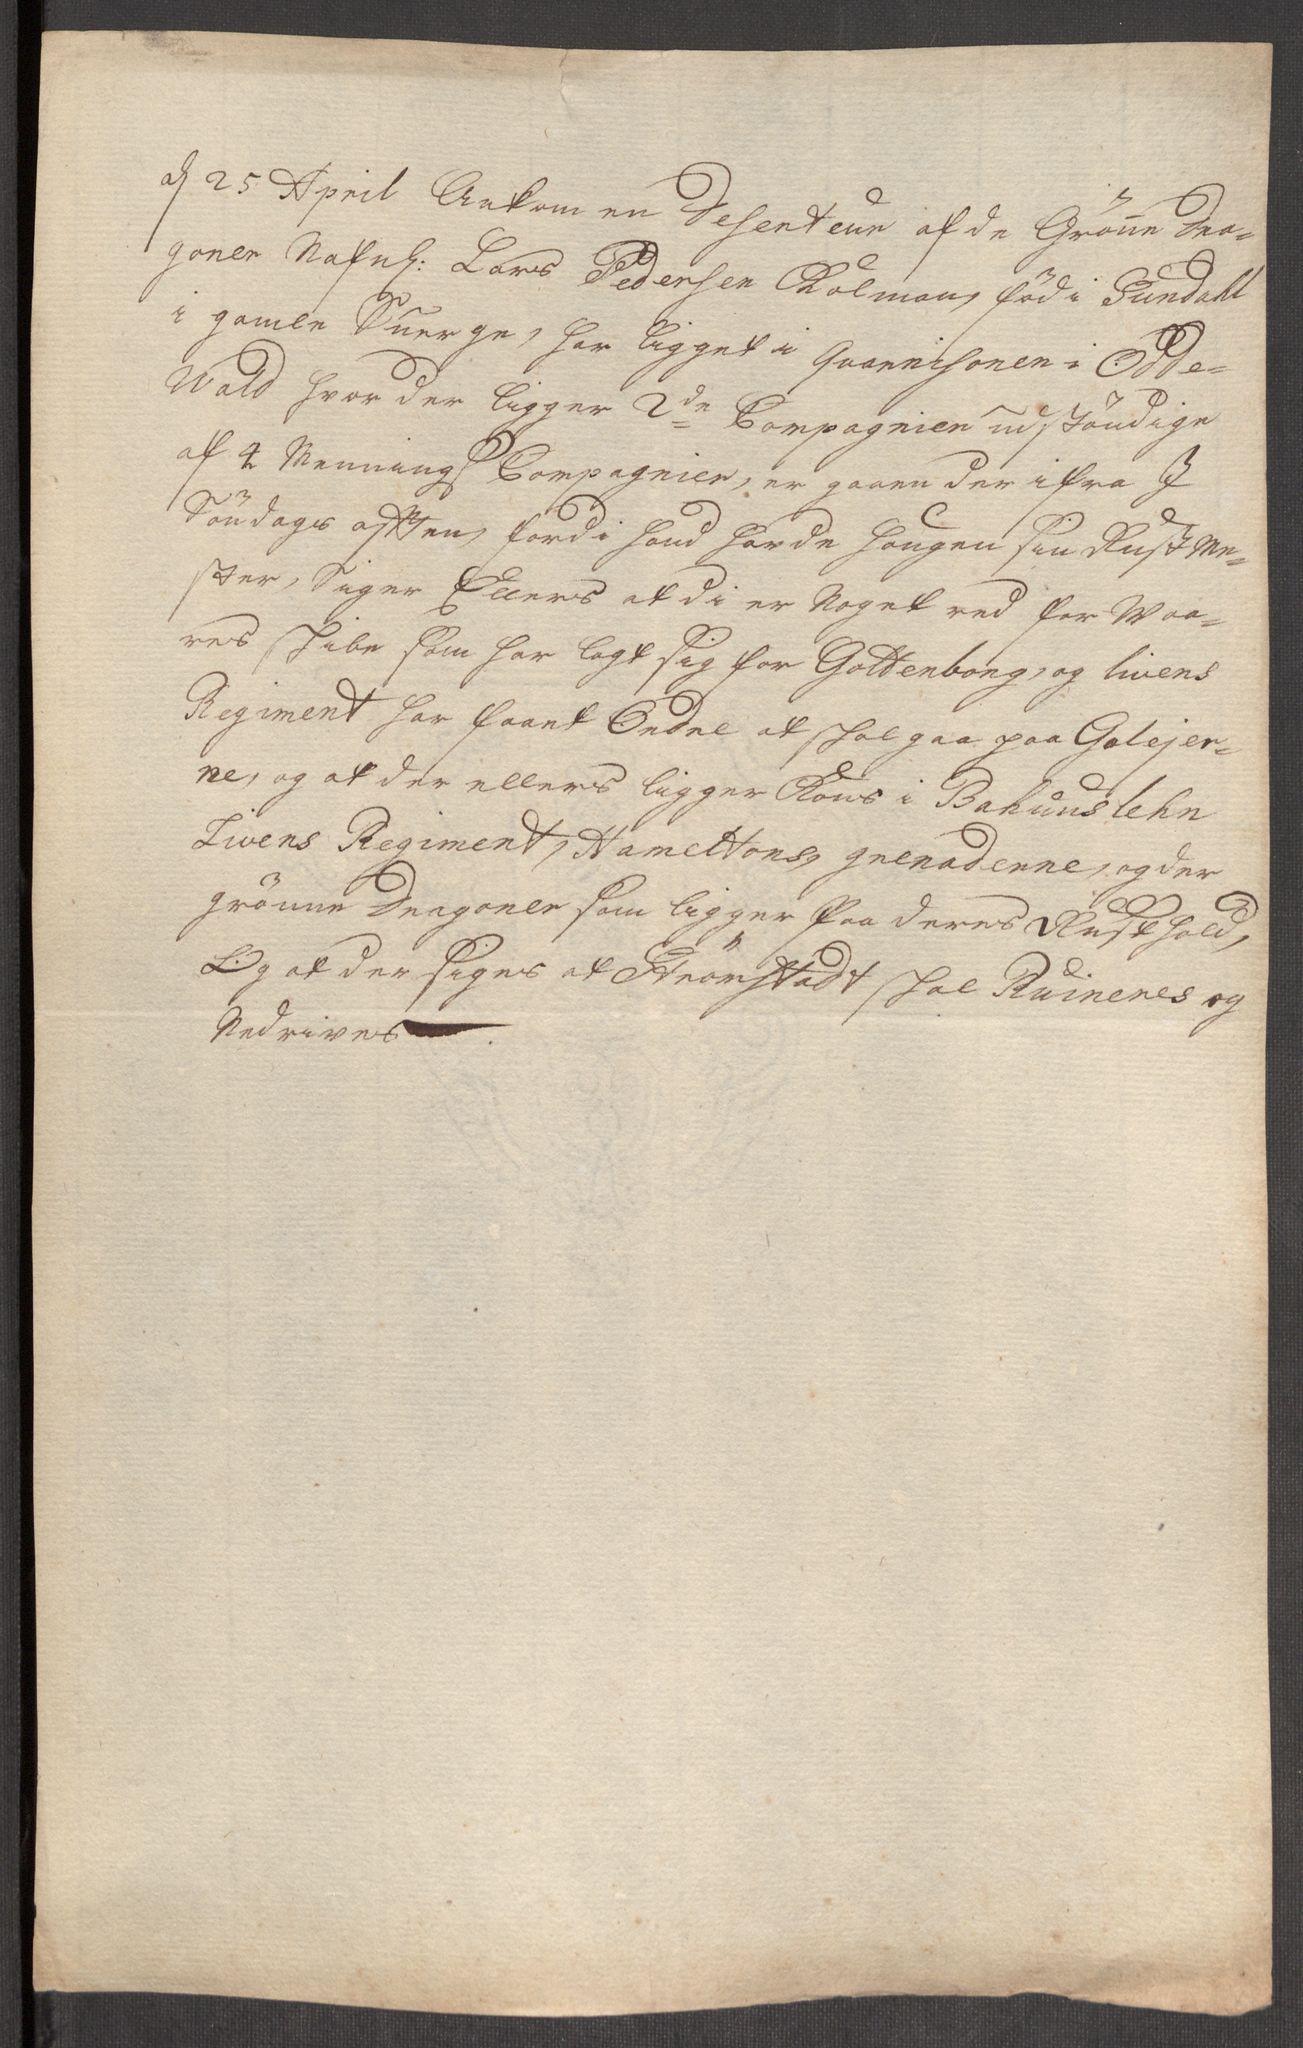 d 25 April Ankom en Deserteur af de Grönne Dra-
goner Nafnl: Lars Pedersen Kolman, föd i Sundahl
i gamle Suerge, har ligget i Guarnisonen i Odde-
Wald hvor der ligger 2de Compagnier udständige
af 4 Mennings Compagnier, er gaaen der ifra I
Söndags aften, fordi hand hafde hougen sin RustMe-
ster, Siger Ellers at di er Noget red for Waa-
res skibe som har lagt sig for Gottenborg, og livens
Regiment har faaet Ordre at skal gaa paa Galejer-
ne, og at der ellers ligger i Bahuus lehn
Livens Regiment, Hameltons, grenaderne, og der
grönne Dragoner som ligger paa deres Rusthold,
Og at der siges at Strömstadt skal Ruineres og
Nedrives